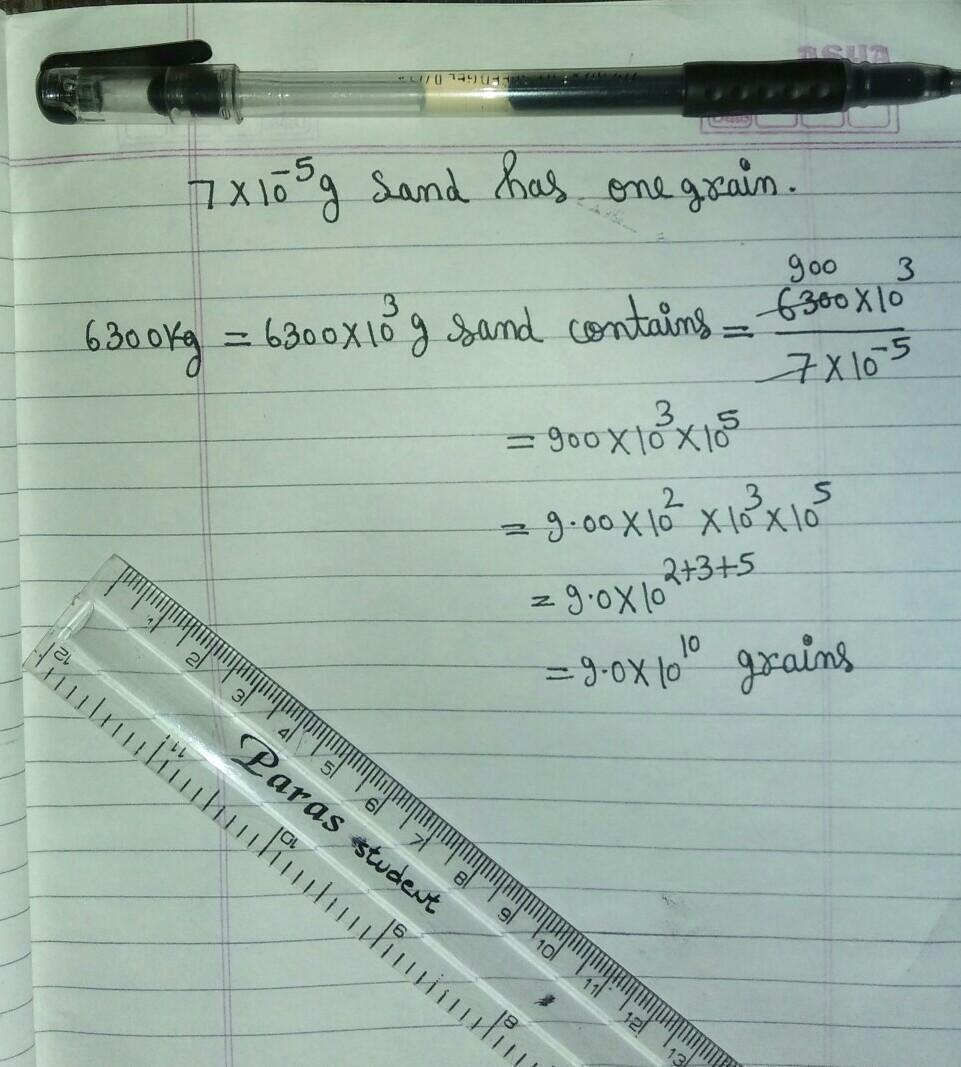 ASHA
7×10⁻⁵g sand has one grain.
900
6300kg = 6300×10³ g sand contains = 6300×10³ / 7×10⁻⁵
= 900×10³×10⁵
= 9.00×10² ×10³×10⁵
= 9.0×10²⁺³⁺⁵
= 9.0×10¹⁰ grains
1 2 3 4 5 6 7 8 9 10 11 12 13
Paras student
12 11 10 9 8